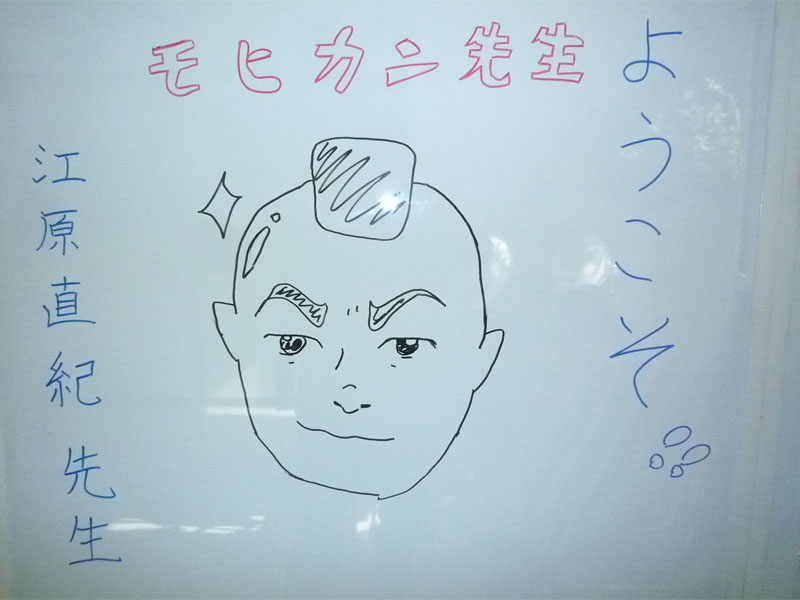 モヒカン先生
ようこそ
江原直紀先生